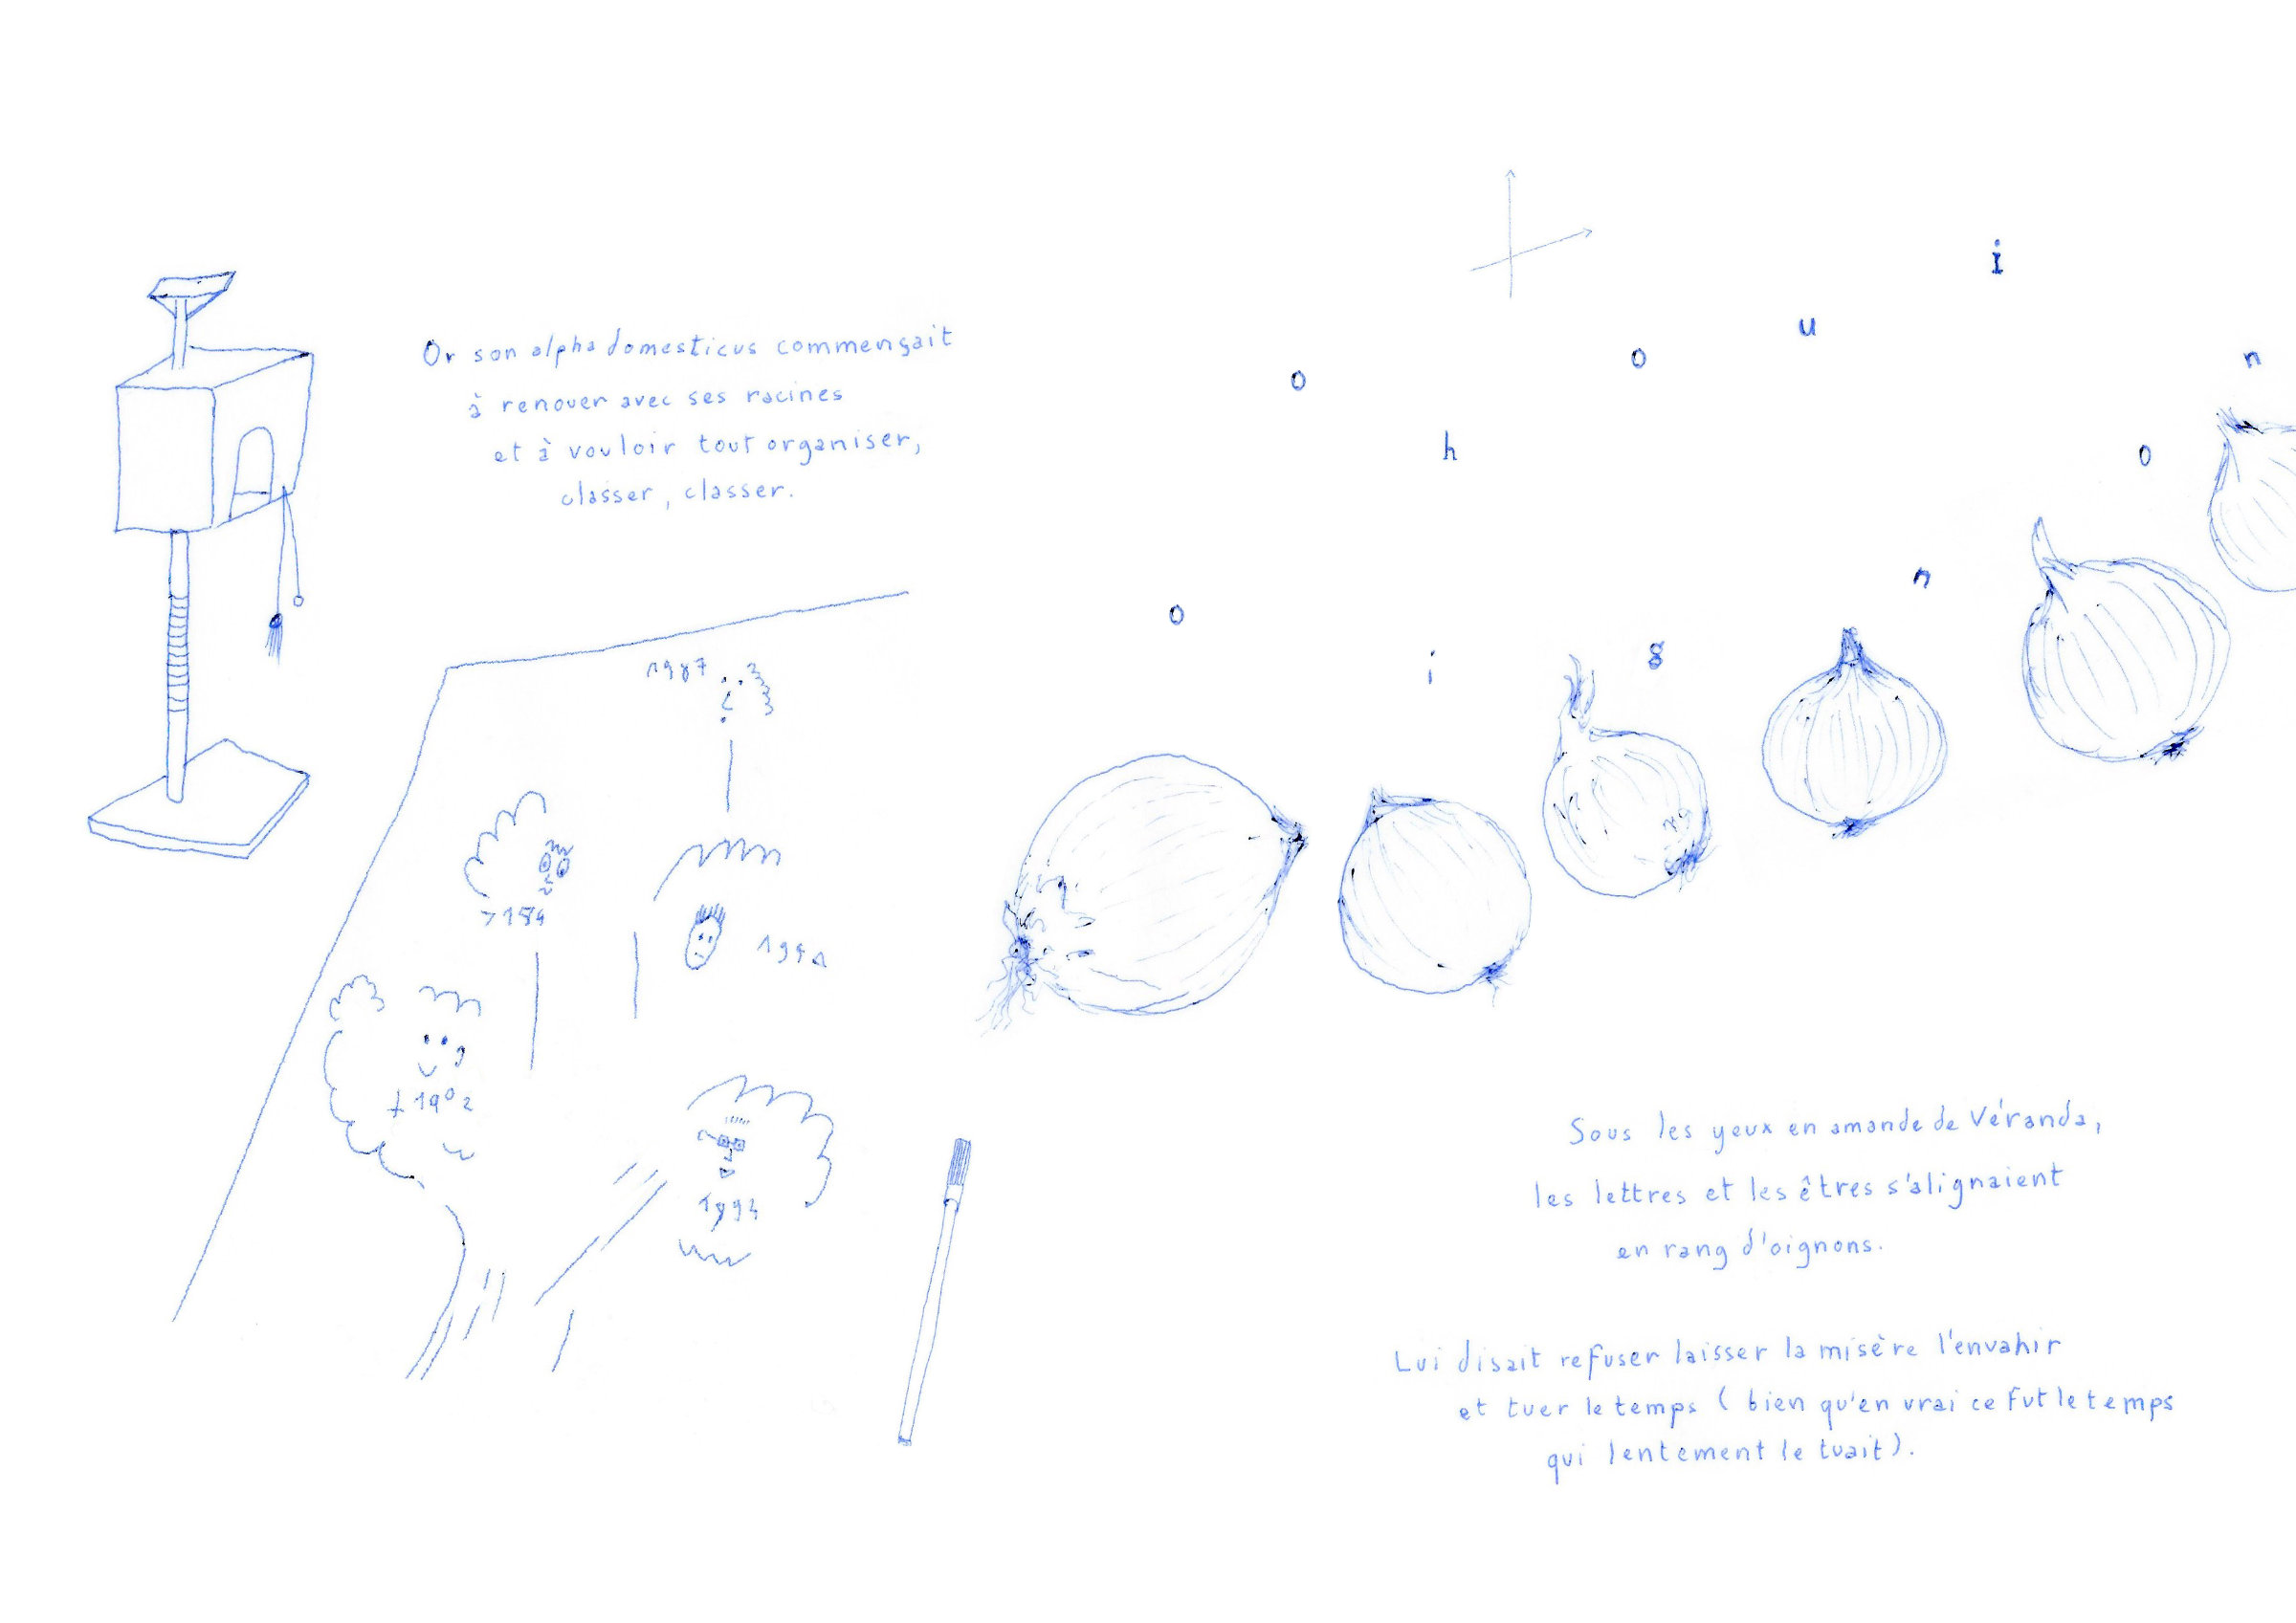 Or son alpha domesticus commençait
à renouer avec ses racines
et à vouloir tout organiser,
classer, classer.
1987
>1584
1991
†1902
1994
o h o u i
o i g n o n
Sous les yeux en amande de Véranda,
les lettres et les êtres s'alignaient
en rang d'oignons.
Lui disait refuser laisser la misère l'envahir
et tuer le temps (bien qu'en vrai ce fut le temps
qui lentement le tuait).